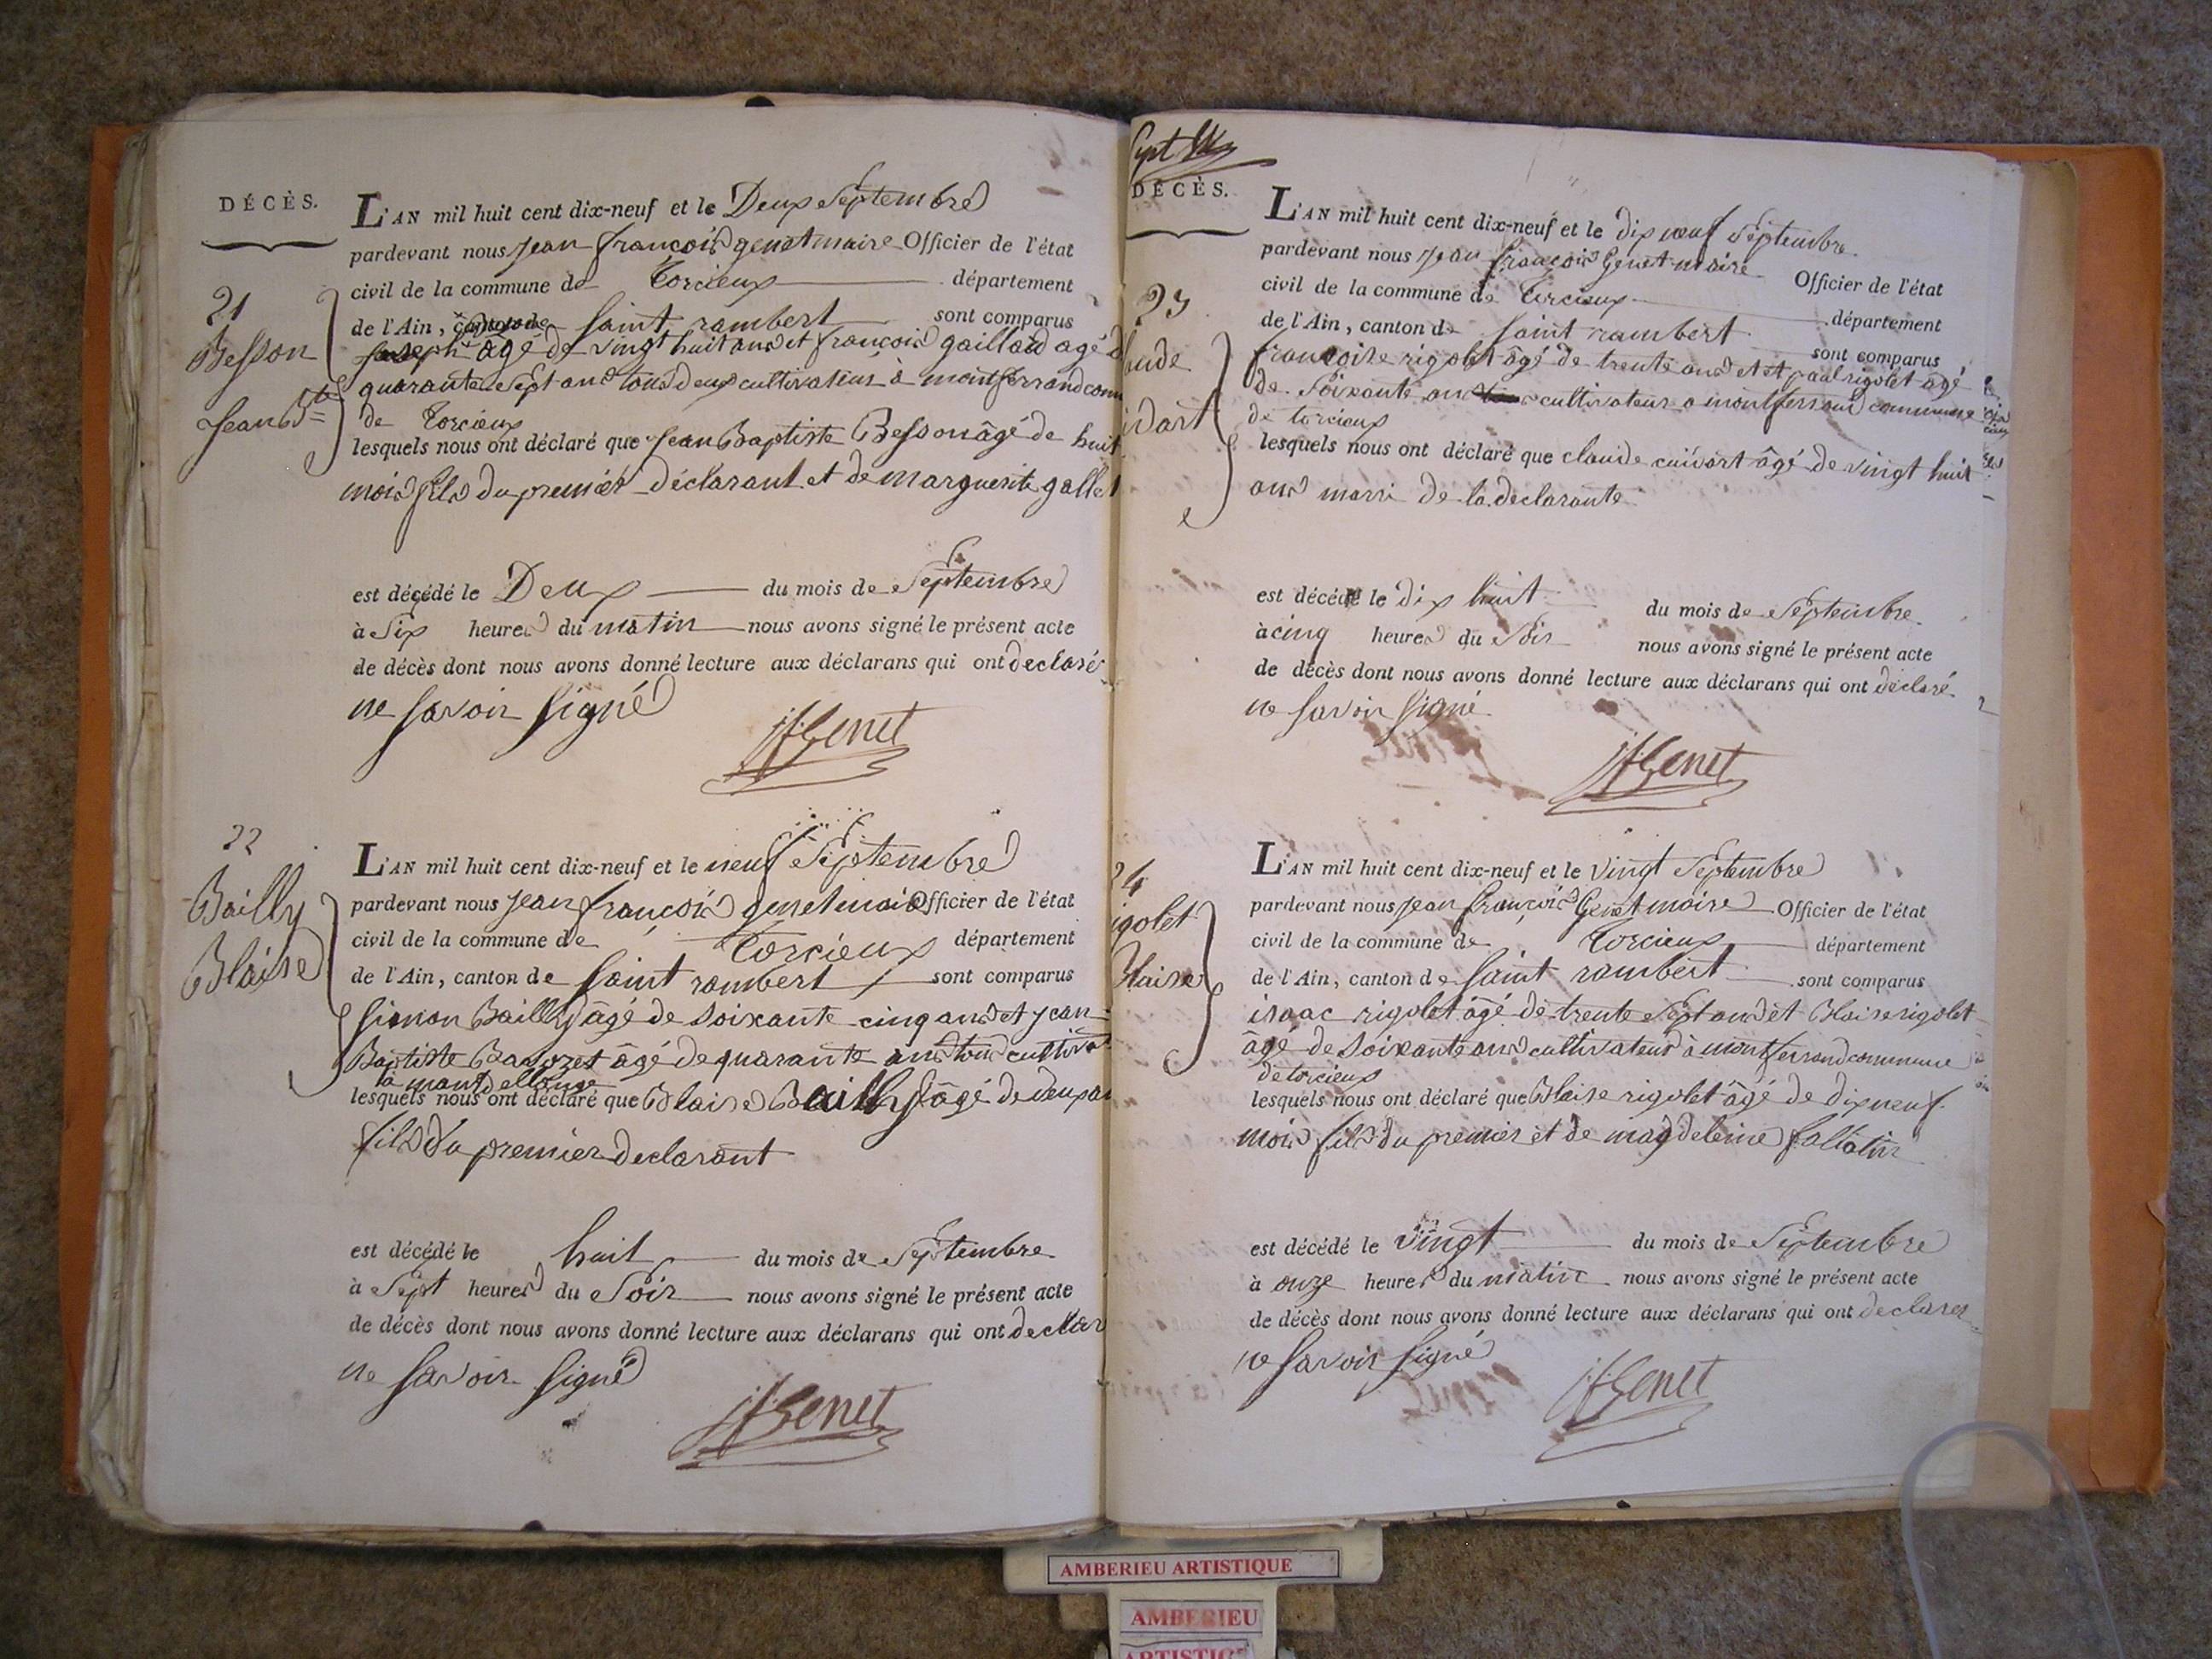 DÉCÈS.
L'AN mil huit cent dix-neuf et le Deux Septembre
pardevant nous jean françois genet maire Officier de l'état
civil de la commune de Torcieux département
de l'Ain, canton de saint rambert sont comparus
joseph âgé de vingt huit ans et françois gaillard agé
quarante Sept ans tous deux cultivateurs à montferrand
de Torcieux
lesquels nous ont déclaré que jean Baptiste Besson âgé de huit
mois fils du premier déclarant et de marguerite gallet
est décédé le Deux du mois de Septembre
à Six heures du matin nous avons signé le présent acte
de décès dont nous avons donné lecture aux déclarans qui ont declaré
ne savoir signé
jfGenet
21
Besson
Jean Bte
22
Bailly
Blaise
L'AN mil huit cent dix-neuf et le neuf Septembre
pardevant nous jean françois genet maire Officier de l'état
civil de la commune de Torcieux département
de l'Ain, canton de saint rambert sont comparus
simon Bailly âgé de soixante cinq ans et jean
Baptiste âgé de quarante ans tous
à
lesquels nous ont déclaré que Blaise Bailly âgé de deux an
fils du premier declarant
est décédé le huit du mois de Septembre
à Sept heures du Soir nous avons signé le présent acte
de décès dont nous avons donné lecture aux déclarans qui ont declar
ne savoir signé
jfGenet
Sept
DÉCÈS.
L'AN mil huit cent dix-neuf et le dix neuf Septembre
pardevant nous jean françois Genet maire Officier de l'état
civil de la commune de Torcieux département
de l'Ain, canton de saint rambert sont comparus
françoise rigolet âgé de trente ans et et paul rigolet âgé
de Soixante ans cultivateurs a montferrand commune
de torcieux
lesquels nous ont déclaré que claude cuidart âgé de vingt huit
ans marri de la declarante
est décédé le dix huit du mois de Septembre
à cinq heures du Soir nous avons signé le présent acte
de décès dont nous avons donné lecture aux déclarans qui ont déclaré
ne savoir signé
jfGenet
23
aude
idart
24
igolet
Blaise
L'AN mil huit cent dix-neuf et le vingt Septembre
pardevant nous jean françois Genet maire Officier de l'état
civil de la commune de Torcieux département
de l'Ain, canton de saint rambert sont comparus
isaac rigolet âgé de trente Sept ans et Blaise rigolet
âgé de soixante ans cultivateurs à montferrand commune
de torcieux
lesquels nous ont déclaré que Blaise rigolet âgé de dix neuf
mois fils du premier et de magdeleine
est décédé le vingt du mois de Septembre
à onze heures du matin nous avons signé le présent acte
de décès dont nous avons donné lecture aux déclarans qui ont declarer
ne savoir signé
jfGenet
AMBERIEU ARTISTIQUE
AMBERIEU
ARTISTIQ